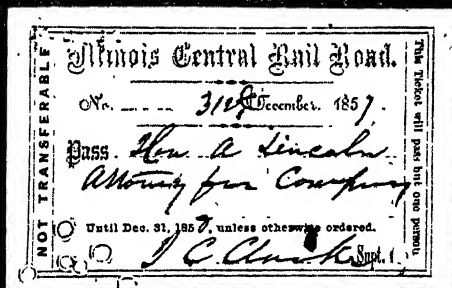 Illinois Central Rail Road.
No. 31st December. 1857.
Pass. Hon A Lincoln
Attorney for Company
Until Dec. 31, 185, unless otherwise ordered.
J C Clarke Supt.
NOT TRANSFERABLE
This Ticket will pass but one person